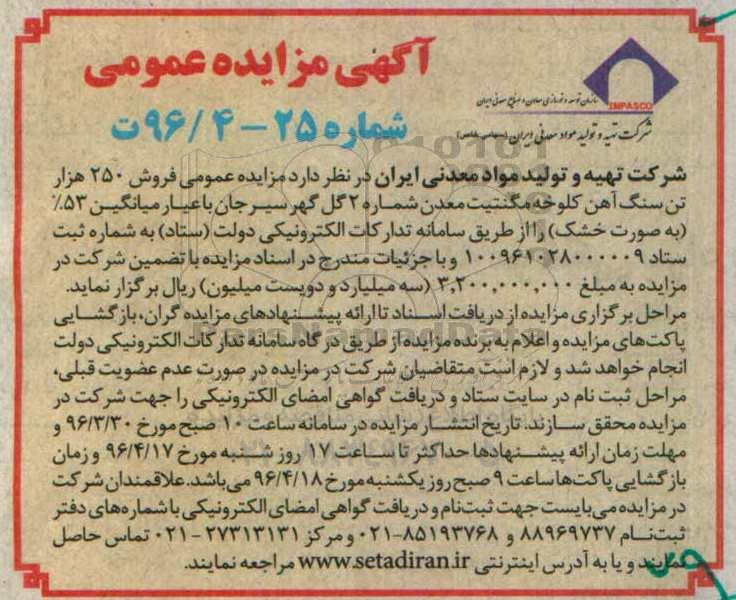 آگهی مزایده عمومی
IMPASCO
شرکت تهیه و تولید مواد معدنی ایران (سهامی خاص)
شماره ۲۵ - ۹۶/۴ت
شرکت تهیه و تولید مواد معدنی ایران در نظر دارد مزایده عمومی فروش ۲۵۰ هزار
تن سنگ آهن کلوخه مگنتیت معدن شماره ۲ گل گهر سیرجان با عیار میانگین ۵۳٪
(به صورت خشک) را از طریق سامانه تدارکات الکترونیکی دولت (ستاد) به شماره ثبت
ستاد ۱۰۰۹۶۱۰۲۸۰۰۰۰۰۹ و با جزئیات مندرج در اسناد مزایده با تضمین شرکت در
مزایده به مبلغ ۳,۲۰۰,۰۰۰,۰۰۰ (سه میلیارد و دویست میلیون) ریال برگزار نماید.
مراحل برگزاری مزایده از دریافت اسناد تا ارائه پیشنهادهای مزایده گران، بازگشایی
پاکت‌های مزایده و اعلام به برنده مزایده از طریق درگاه سامانه تدارکات الکترونیکی دولت
انجام خواهد شد و لازم است متقاضیان شرکت در مزایده در صورت عدم عضویت قبلی،
مراحل ثبت نام در سایت ستاد و دریافت گواهی امضای الکترونیکی را جهت شرکت در
مزایده محقق سازند. تاریخ انتشار مزایده در سامانه ساعت ۱۰ صبح مورخ ۹۶/۳/۳۰ و
مهلت زمان ارائه پیشنهادها حداکثر تا ساعت ۱۷ روز شنبه مورخ ۹۶/۴/۱۷ و زمان
بازگشایی پاکت‌ها ساعت ۹ صبح روز یکشنبه مورخ ۹۶/۴/۱۸ می‌باشد. علاقمندان شرکت
در مزایده می‌بایست جهت ثبت‌نام و دریافت گواهی امضای الکترونیکی با شماره‌های دفتر
ثبت‌نام ۸۸۹۶۹۷۳۷ و ۸۵۱۹۳۷۶۸-۰۲۱ و مرکز ۲۷۳۱۳۱۳۱ - ۰۲۱ تماس حاصل
نمایند و یا به آدرس اینترنتی www.setadiran.ir مراجعه نمایند.